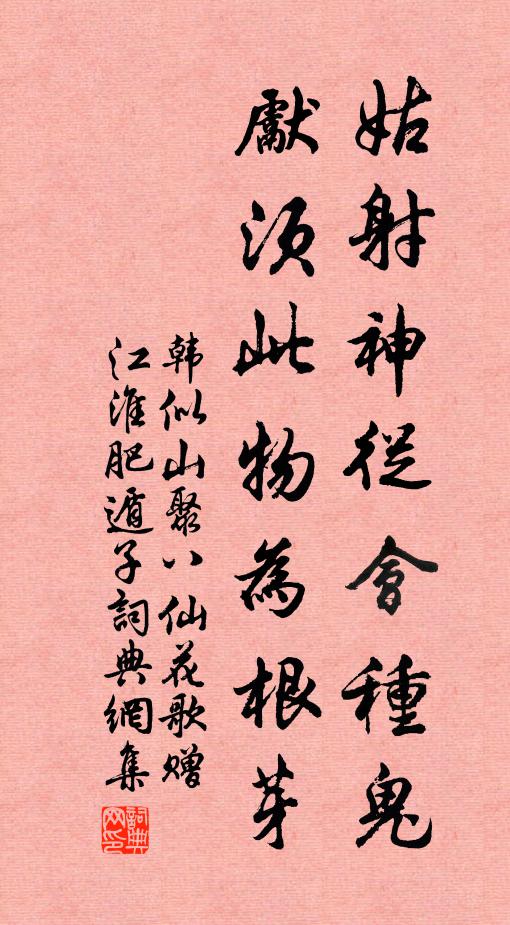 姑射神從會種鬼
獻須此物為根芽
韩似山聚八仙花歌赠
江淮肥遁子詞典網集
詞典网印